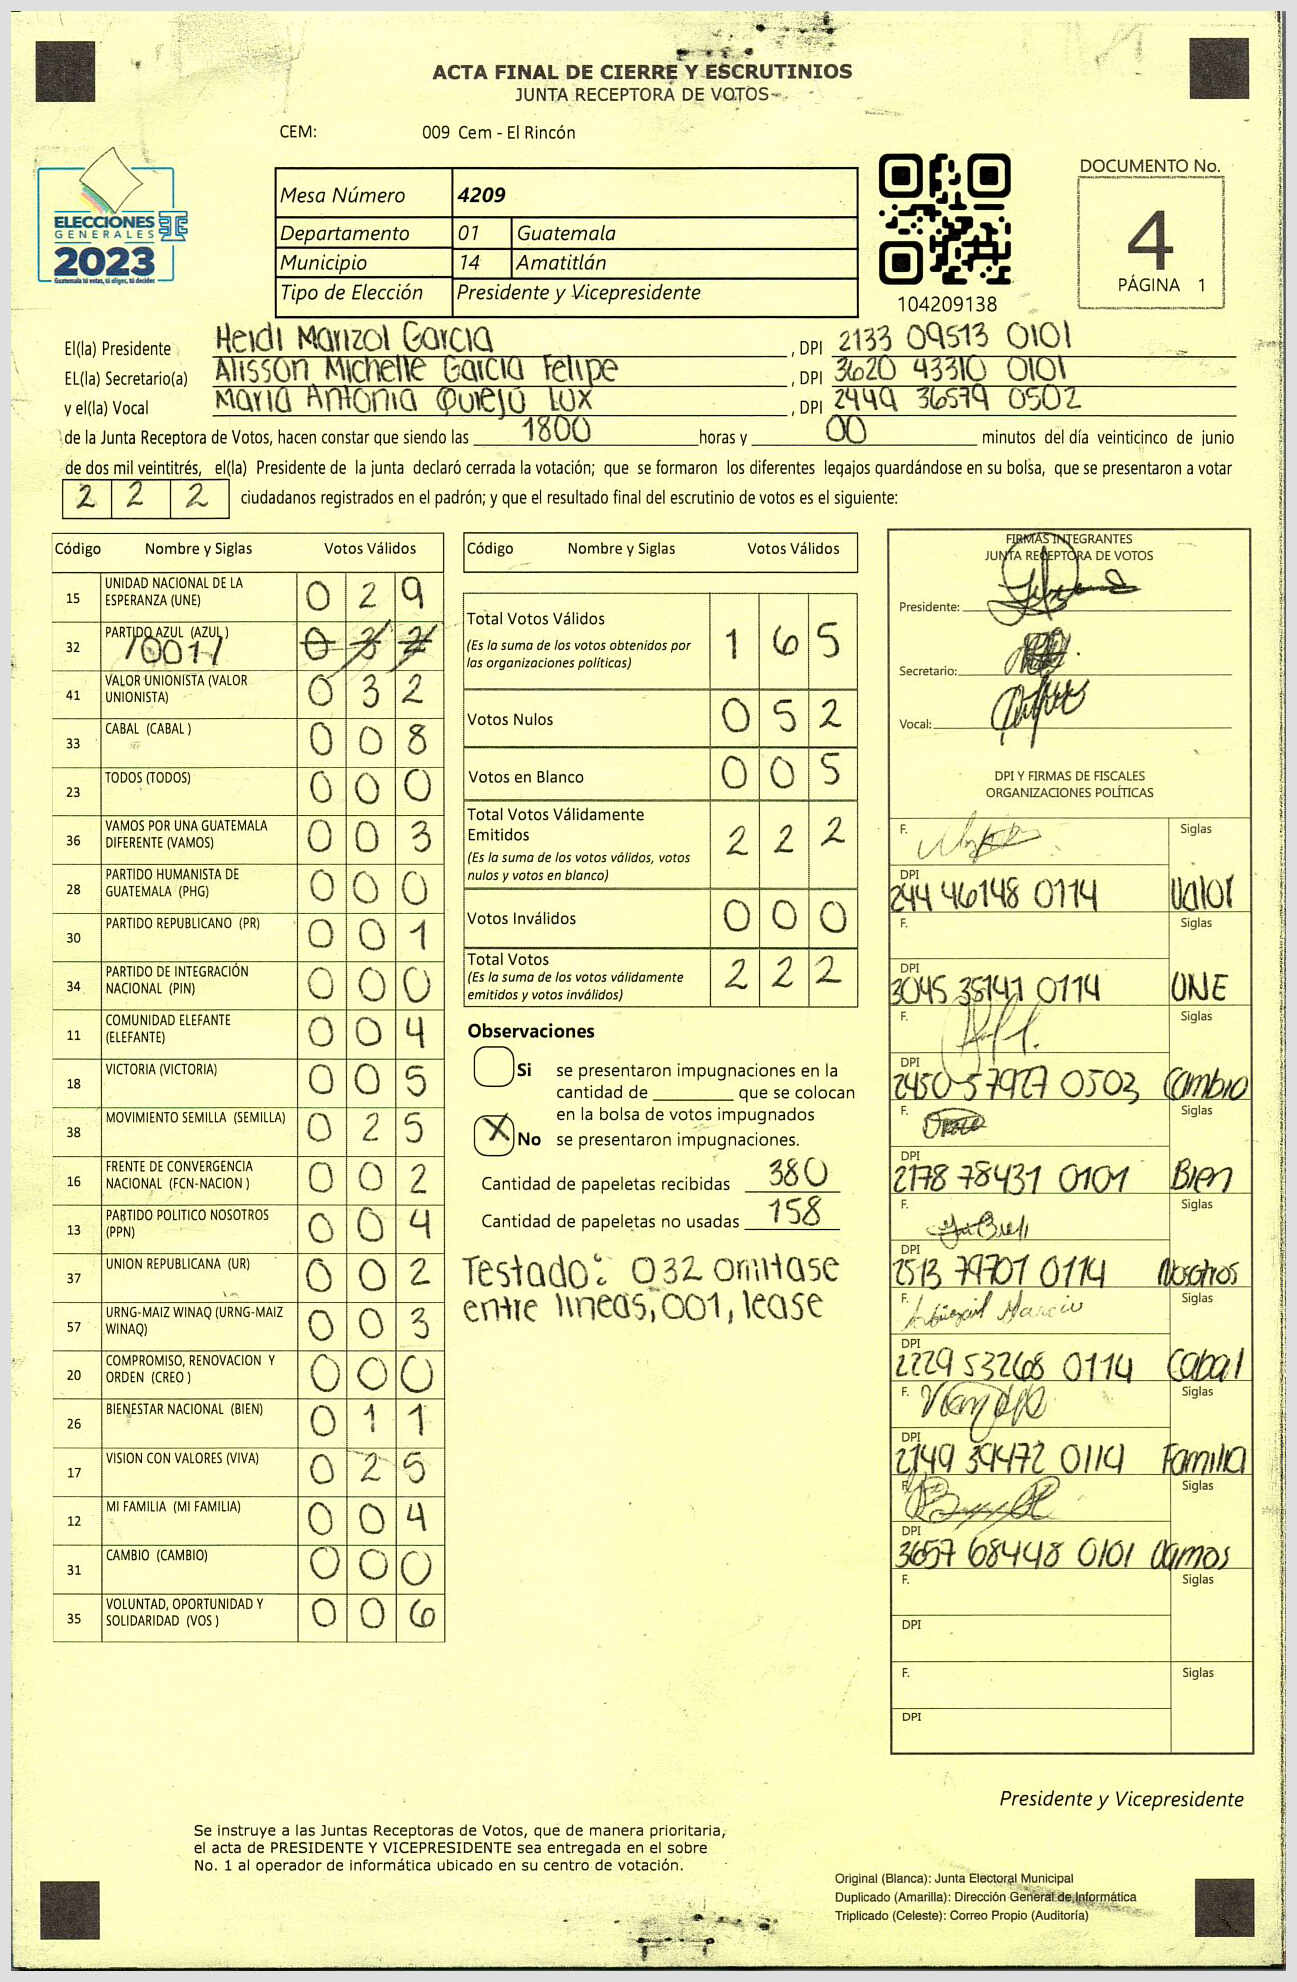 ACTA FINAL DE CIERRE Y ESCRUTINIOS
JUNTA RECEPTORA DE VOTOS
CEM: 009 Cem - El Rincón
ELECCIONES
GENERALES
2023
Guatemala tú votas, tú eliges, tú decides
Mesa Número 4209
Departamento 01 Guatemala
Municipio 14 Amatitlán
Tipo de Elección Presidente y Vicepresidente
104209138
DOCUMENTO No.
4
PÁGINA 1
El(la) Presidente Heidi Marizol Garcia , DPI 2133 09513 0101
EL(la) Secretario(a) Alisson Michelle Garcia Felipe , DPI 3620 43310 0101
y el(la) Vocal Maria Antonia Quiejú Lux , DPI 2449 36579 0502
de la Junta Receptora de Votos, hacen constar que siendo las 1800 horas y 00 minutos del día veinticinco de junio
de dos mil veintitrés, el(la) Presidente de la junta declaró cerrada la votación; que se formaron los diferentes legajos guardándose en su bolsa, que se presentaron a votar
2 2 2 ciudadanos registrados en el padrón; y que el resultado final del escrutinio de votos es el siguiente:
Código Nombre y Siglas Votos Válidos
15 UNIDAD NACIONAL DE LA ESPERANZA (UNE) 0 2 9
32 PARTIDO AZUL (AZUL) /001/ 0 3 2
41 VALOR UNIONISTA (VALOR UNIONISTA) 0 3 2
33 CABAL (CABAL ) 0 0 8
23 TODOS (TODOS) 0 0 0
36 VAMOS POR UNA GUATEMALA DIFERENTE (VAMOS) 0 0 3
28 PARTIDO HUMANISTA DE GUATEMALA (PHG) 0 0 0
30 PARTIDO REPUBLICANO (PR) 0 0 1
34 PARTIDO DE INTEGRACIÓN NACIONAL (PIN) 0 0 0
11 COMUNIDAD ELEFANTE (ELEFANTE) 0 0 4
18 VICTORIA (VICTORIA) 0 0 5
38 MOVIMIENTO SEMILLA (SEMILLA) 0 2 5
16 FRENTE DE CONVERGENCIA NACIONAL (FCN-NACION ) 0 0 2
13 PARTIDO POLITICO NOSOTROS (PPN) 0 0 4
37 UNION REPUBLICANA (UR) 0 0 2
57 URNG-MAIZ WINAQ (URNG-MAIZ WINAQ) 0 0 3
20 COMPROMISO, RENOVACION Y ORDEN (CREO ) 0 0 0
26 BIENESTAR NACIONAL (BIEN) 0 1 1
17 VISION CON VALORES (VIVA) 0 2 5
12 MI FAMILIA (MI FAMILIA) 0 0 4
31 CAMBIO (CAMBIO) 0 0 0
35 VOLUNTAD, OPORTUNIDAD Y SOLIDARIDAD (VOS ) 0 0 6
Código Nombre y Siglas Votos Válidos
Total Votos Válidos 1 6 5
(Es la suma de los votos obtenidos por
las organizaciones políticas)
Votos Nulos 0 5 2
Votos en Blanco 0 0 5
Total Votos Válidamente
Emitidos 2 2 2
(Es la suma de los votos válidos, votos
nulos y votos en blanco)
Votos Inválidos 0 0 0
Total Votos 2 2 2
(Es la suma de los votos válidamente
emitidos y votos inválidos)
Observaciones
Si se presentaron impugnaciones en la
cantidad de ________ que se colocan
en la bolsa de votos impugnados
X No se presentaron impugnaciones.
Cantidad de papeletas recibidas 380
Cantidad de papeletas no usadas 158
Testado: 032 omitase
entre lineas, 001, lease
FIRMAS INTEGRANTES
JUNTA RECEPTORA DE VOTOS
Presidente:
Secretario:
Vocal:
DPI Y FIRMAS DE FISCALES
ORGANIZACIONES POLÍTICAS
F. Siglas
DPI
244 46148 0114 Valor
F. Siglas
DPI
3045 35141 0114 UNE
F. Siglas
DPI
2450 57927 0503 Cambio
F. Siglas
DPI
2178 78431 0101 Bien
F. Siglas
DPI
2513 79701 0114 Nosotros
F. Siglas
DPI
2229 53268 0114 Cabal
F. Siglas
DPI
2149 39472 0114 Familia
F. Siglas
DPI
3657 68448 0101 Vamos
F. Siglas
DPI
F. Siglas
DPI
Presidente y Vicepresidente
Se instruye a las Juntas Receptoras de Votos, que de manera prioritaria,
el acta de PRESIDENTE Y VICEPRESIDENTE sea entregada en el sobre
No. 1 al operador de informática ubicado en su centro de votación.
Original (Blanca): Junta Electoral Municipal
Duplicado (Amarilla): Dirección General de Informática
Triplicado (Celeste): Correo Propio (Auditoría)